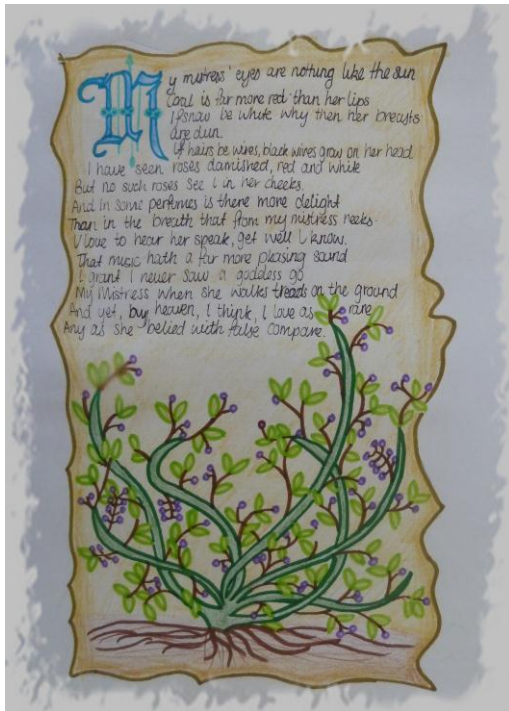 My mistress' eyes are nothing like the sun
Coral is far more red than her lips
If snow be white why then her breasts
are dun.
If hairs be wires, black wires grow on her head
I have seen roses damished, red and white
But no such roses see I in her cheeks.
And in some perfumes is there more delight
Than in the breath that from my mistress reeks.
I love to hear her speak, yet well I know.
That music hath a far more pleasing sound
I grant I never saw a goddess go
My Mistress when she walks treads on the ground
And yet, by heaven, I think, I love as rare
Any as she belied with false compare.